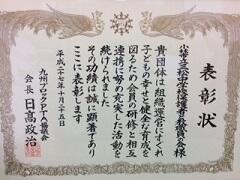 表彰状
小林市立三松小学校保護者教職員の会様
貴団体は組織運営にすぐれ
子どもの幸せと健全な育成を
図るため会員の研修と相互
連携に努め充実した活動を
続けられました
その功績は誠に顕著であり
ここに表彰します
平成二十七年十月二十五日
九州ブロックPTA協議会
会長 日髙政治